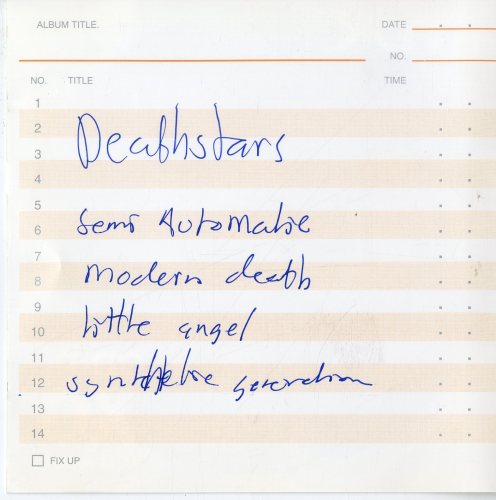 ALBUM TITLE. DATE . .
NO.
NO. TITLE TIME
1 . .
2 . .
Deathstars
3 . .
4 . .
5 . .
6 Semi Automatic . .
7 . .
8 modern death . .
9 . .
10 little angel . .
11 . .
12 synthetic generation . .
13 . .
14 . .
FIX UP